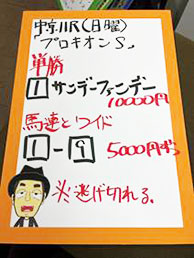 中京11R(日曜)
「プロキオンS」
単勝
1 サンデーファンデー
10000円
馬連とワイド
1-9 5000円ずつ
※逃げ切れる。